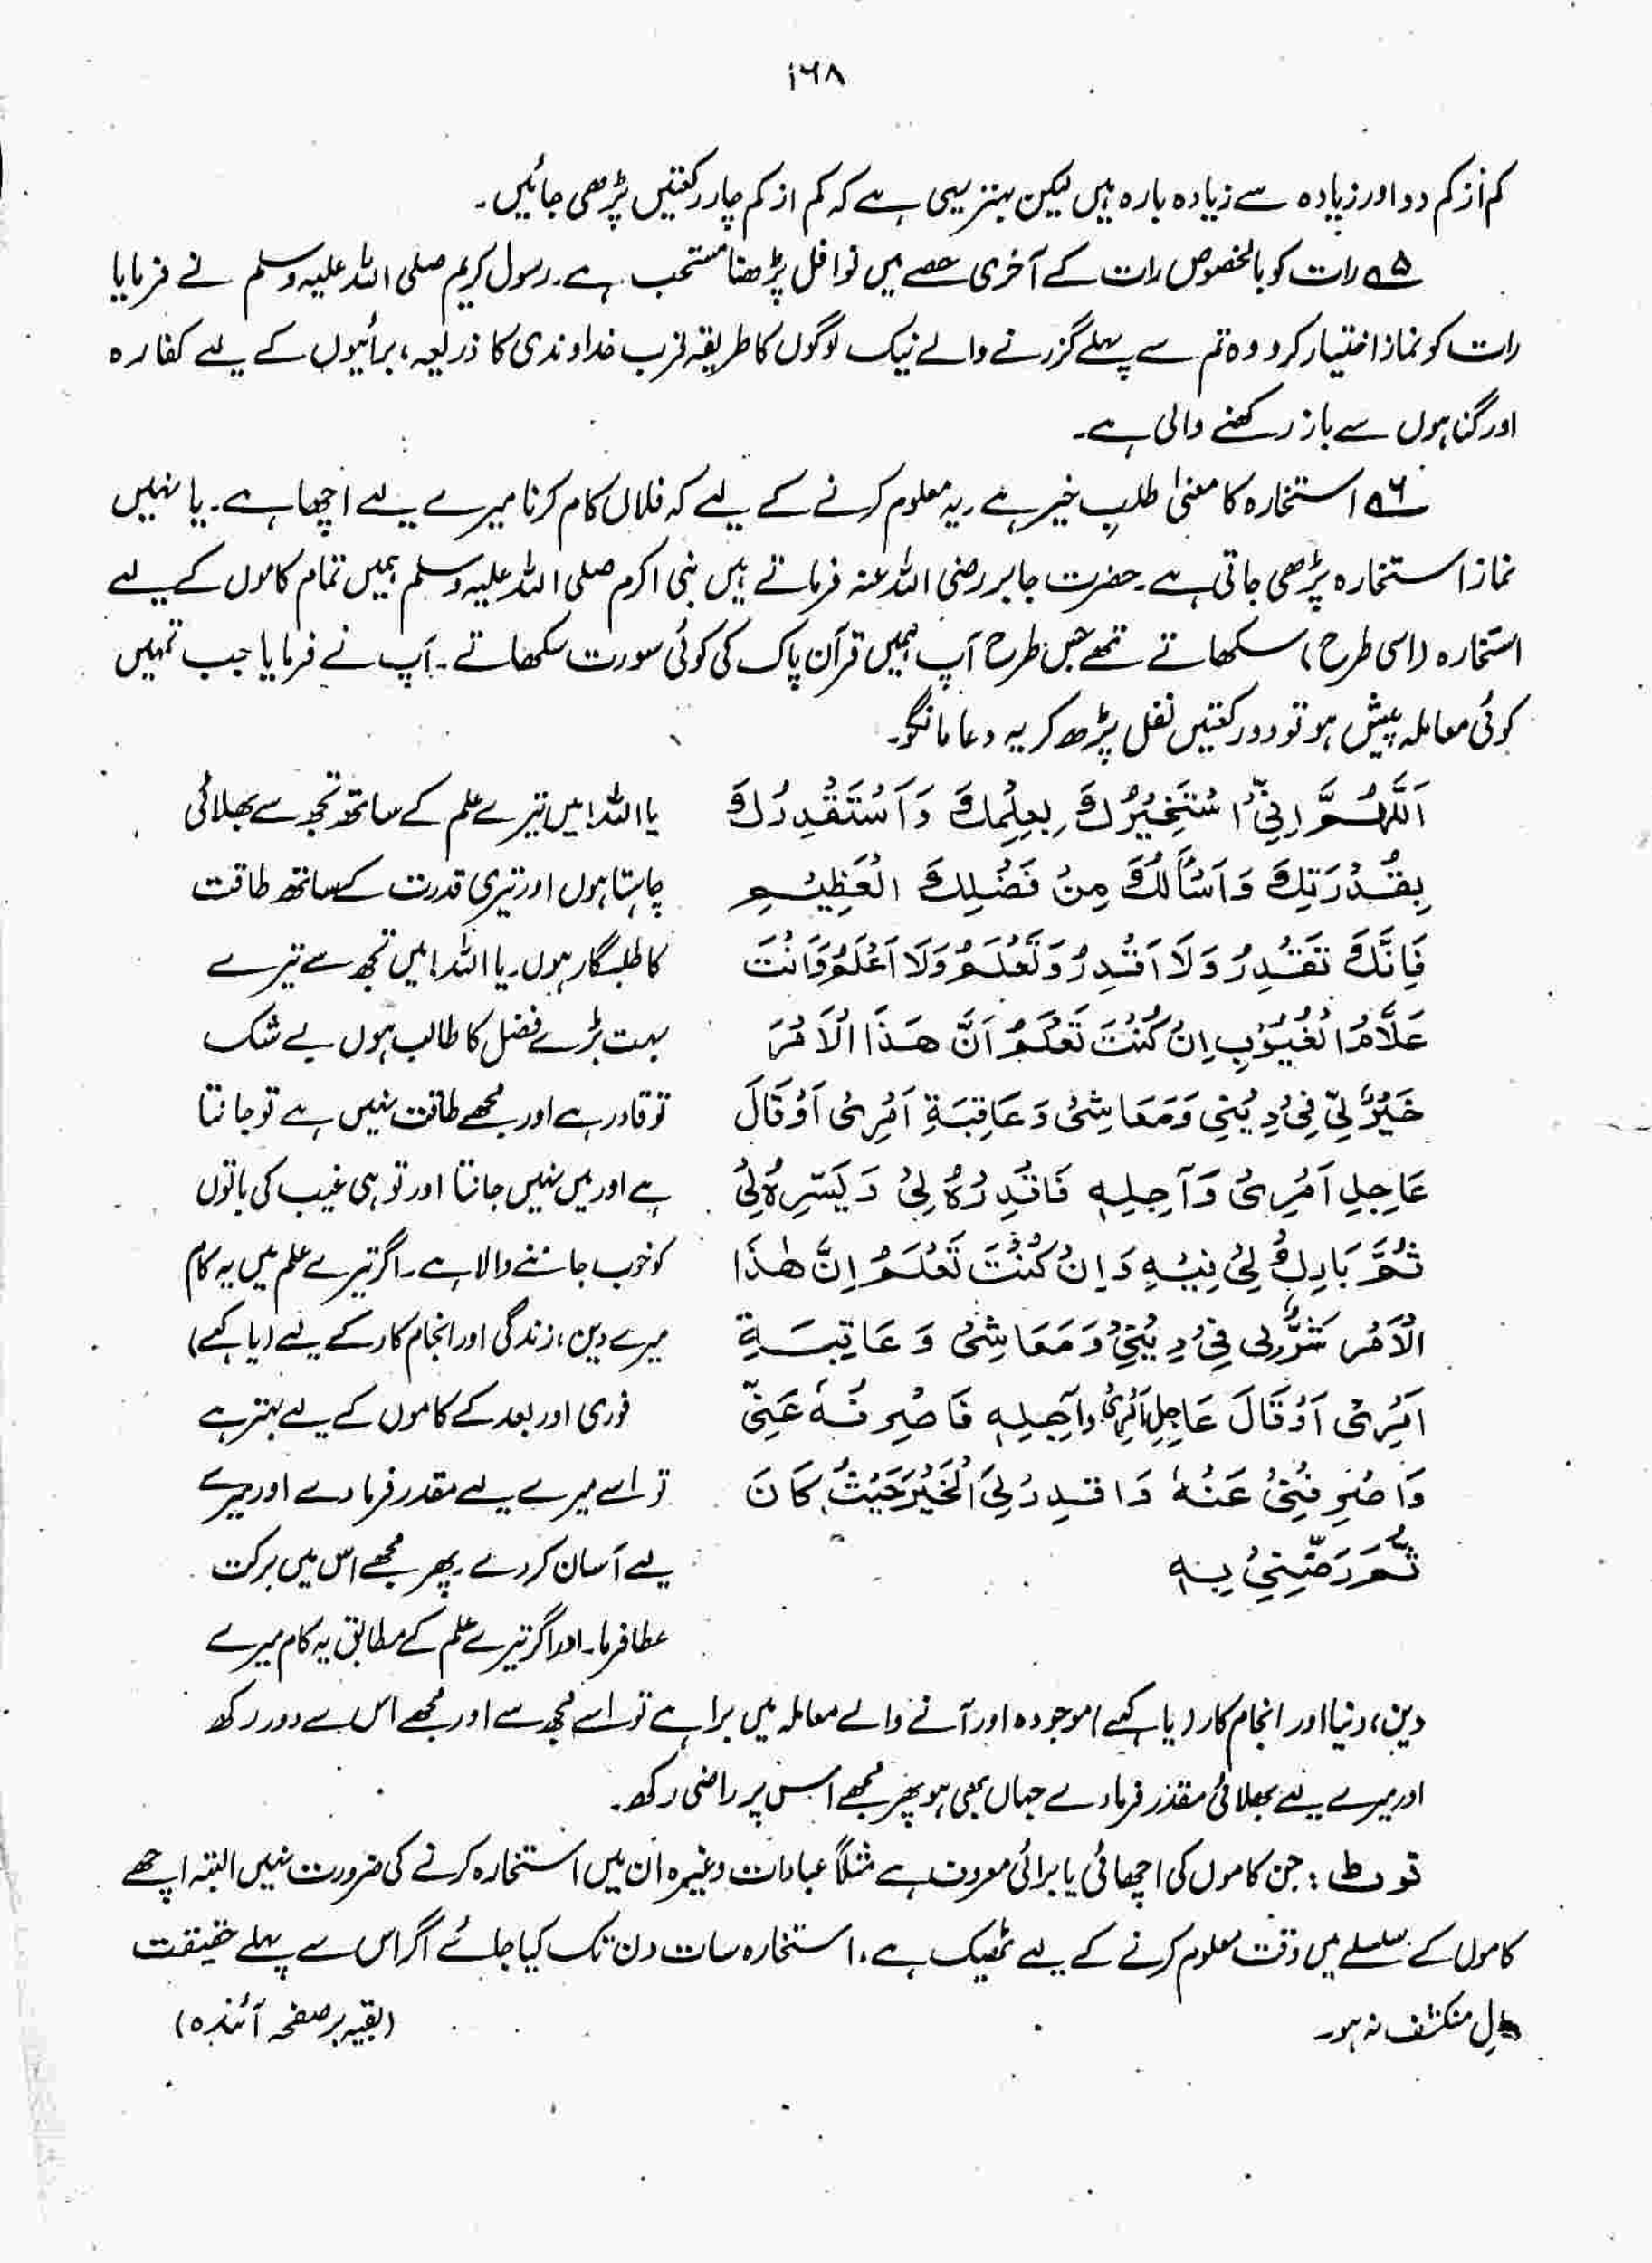 ۱۶۸
کم از کم دو اور زیادہ سے زیادہ بارہ ہیں لیکن بہتر یہی ہے کہ کم از کم چار رکعتیں پڑھی جائیں۔
۵؎ رات کو بالخصوص رات کے آخری حصے میں نوافل پڑھنا مستحب ہے۔ رسول کریم صلی اللہ علیہ وسلم نے فرمایا
رات کو نماز اختیار کرو وہ تم سے پہلے گزرنے والے نیک لوگوں کا طریقہ قرب خداوندی کا ذریعہ، برائیوں کے لیے کفارہ
اور گناہوں سے باز رکھنے والی ہے۔
۶؎ استخارہ کا معنیٰ طلبِ خیر ہے۔ یہ معلوم کرنے کے لیے کہ فلاں کام کرنا میرے لیے اچھا ہے۔ یا نہیں
نماز استخارہ پڑھی جاتی ہے۔ حضرت جابر رضی اللہ عنہ فرماتے ہیں نبی اکرم صلی اللہ علیہ وسلم ہمیں تمام کاموں کے لیے
استخارہ (اسی طرح) سکھاتے تھے جس طرح آپ ہمیں قرآن پاک کی کوئی سورت سکھاتے۔ آپ نے فرمایا جب تمہیں
کوئی معاملہ پیش ہو تو دو رکعتیں نفل پڑھ کر یہ دعا مانگو۔
اَللّٰهُمَّ اِنِّیْ اَسْتَخِیْرُكَ بِعِلْمِكَ وَاَسْتَقْدِرُكَ
بِقُدْرَتِكَ وَاَسْأَلُكَ مِنْ فَضْلِكَ الْعَظِیْمِ
فَاِنَّكَ تَقْدِرُ وَلَا اَقْدِرُ وَتَعْلَمُ وَلَا اَعْلَمُ وَاَنْتَ
عَلَّامُ الْغُیُوْبِ اِنْ كُنْتَ تَعْلَمُ اَنَّ هَذَا الْاَمْرَ
خَیْرٌ لِّیْ فِیْ دِیْنِیْ وَمَعَاشِیْ وَعَاقِبَةِ اَمْرِیْ اَوْ قَالَ
عَاجِلِ اَمْرِیْ وَآجِلِهٖ فَاقْدِرْهُ لِیْ وَیَسِّرْهُ لِیْ
ثُمَّ بَارِكْ لِیْ فِیْهِ وَاِنْ كُنْتَ تَعْلَمُ اِنَّ هٰذَا
الْاَمْرَ شَرٌّ لِی فِیْ دِیْنِیْ وَمَعَاشِیْ وَ عَاقِبَةِ
اَمْرِیْ اَوْ قَالَ عَاجِلِ اَمْرِیْ وَآجِلِهٖ فَاصْرِفْهُ عَنِّیْ
وَاصْرِفْنِیْ عَنْهُ وَاقْدِرْ لِیَ الْخَیْرَ حَیْثُ كَانَ
ثُمَّ رَضِّنِیْ بِهٖ
یا اللہ! میں تیرے علم کے ساتھ تجھ سے بھلائی
چاہتا ہوں اور تیری قدرت کے ساتھ طاقت
کا طلبگار ہوں۔ یا اللہ! میں تجھ سے تیرے
بہت بڑے فضل کا طالب ہوں بے شک
تو قادر ہے اور مجھے طاقت نہیں ہے تو جانتا
ہے اور میں نہیں جانتا اور تو ہی غیب کی باتوں
کو خوب جاننے والا ہے۔ اگر تیرے علم میں یہ کام
میرے دین، زندگی اور انجام کار کے لیے (یا کہے)
فوری اور بعد کے کاموں کے لیے بہتر ہے
تو اسے میرے لیے مقدر فرما دے اور میرے
لیے آسان کر دے۔ پھر مجھے اس میں برکت
عطا فرما۔ اور اگر تیرے علم کے مطابق یہ کام میرے
دین، دنیا اور انجام کار (یا کہے) موجودہ اور آنے والے معاملہ میں برا ہے تو اسے مجھ سے اور مجھے اس سے دور رکھ
اور میرے لیے بھلائی مقدر فرما دے جہاں بھی ہو پھر مجھے اس پر راضی رکھ۔
نوٹ: جن کاموں کی اچھائی یا برائی معروف ہے مثلاً عبادات وغیرہ ان میں استخارہ کرنے کی ضرورت نہیں البتہ اچھے
کاموں کے سلسلے میں وقت معلوم کرنے کے لیے ٹھیک ہے۔ استخارہ سات دن تک کیا جائے اگر اس سے پہلے حقیقت
منکشف نہ ہو۔ (بقیہ بر صفحہ آئندہ)